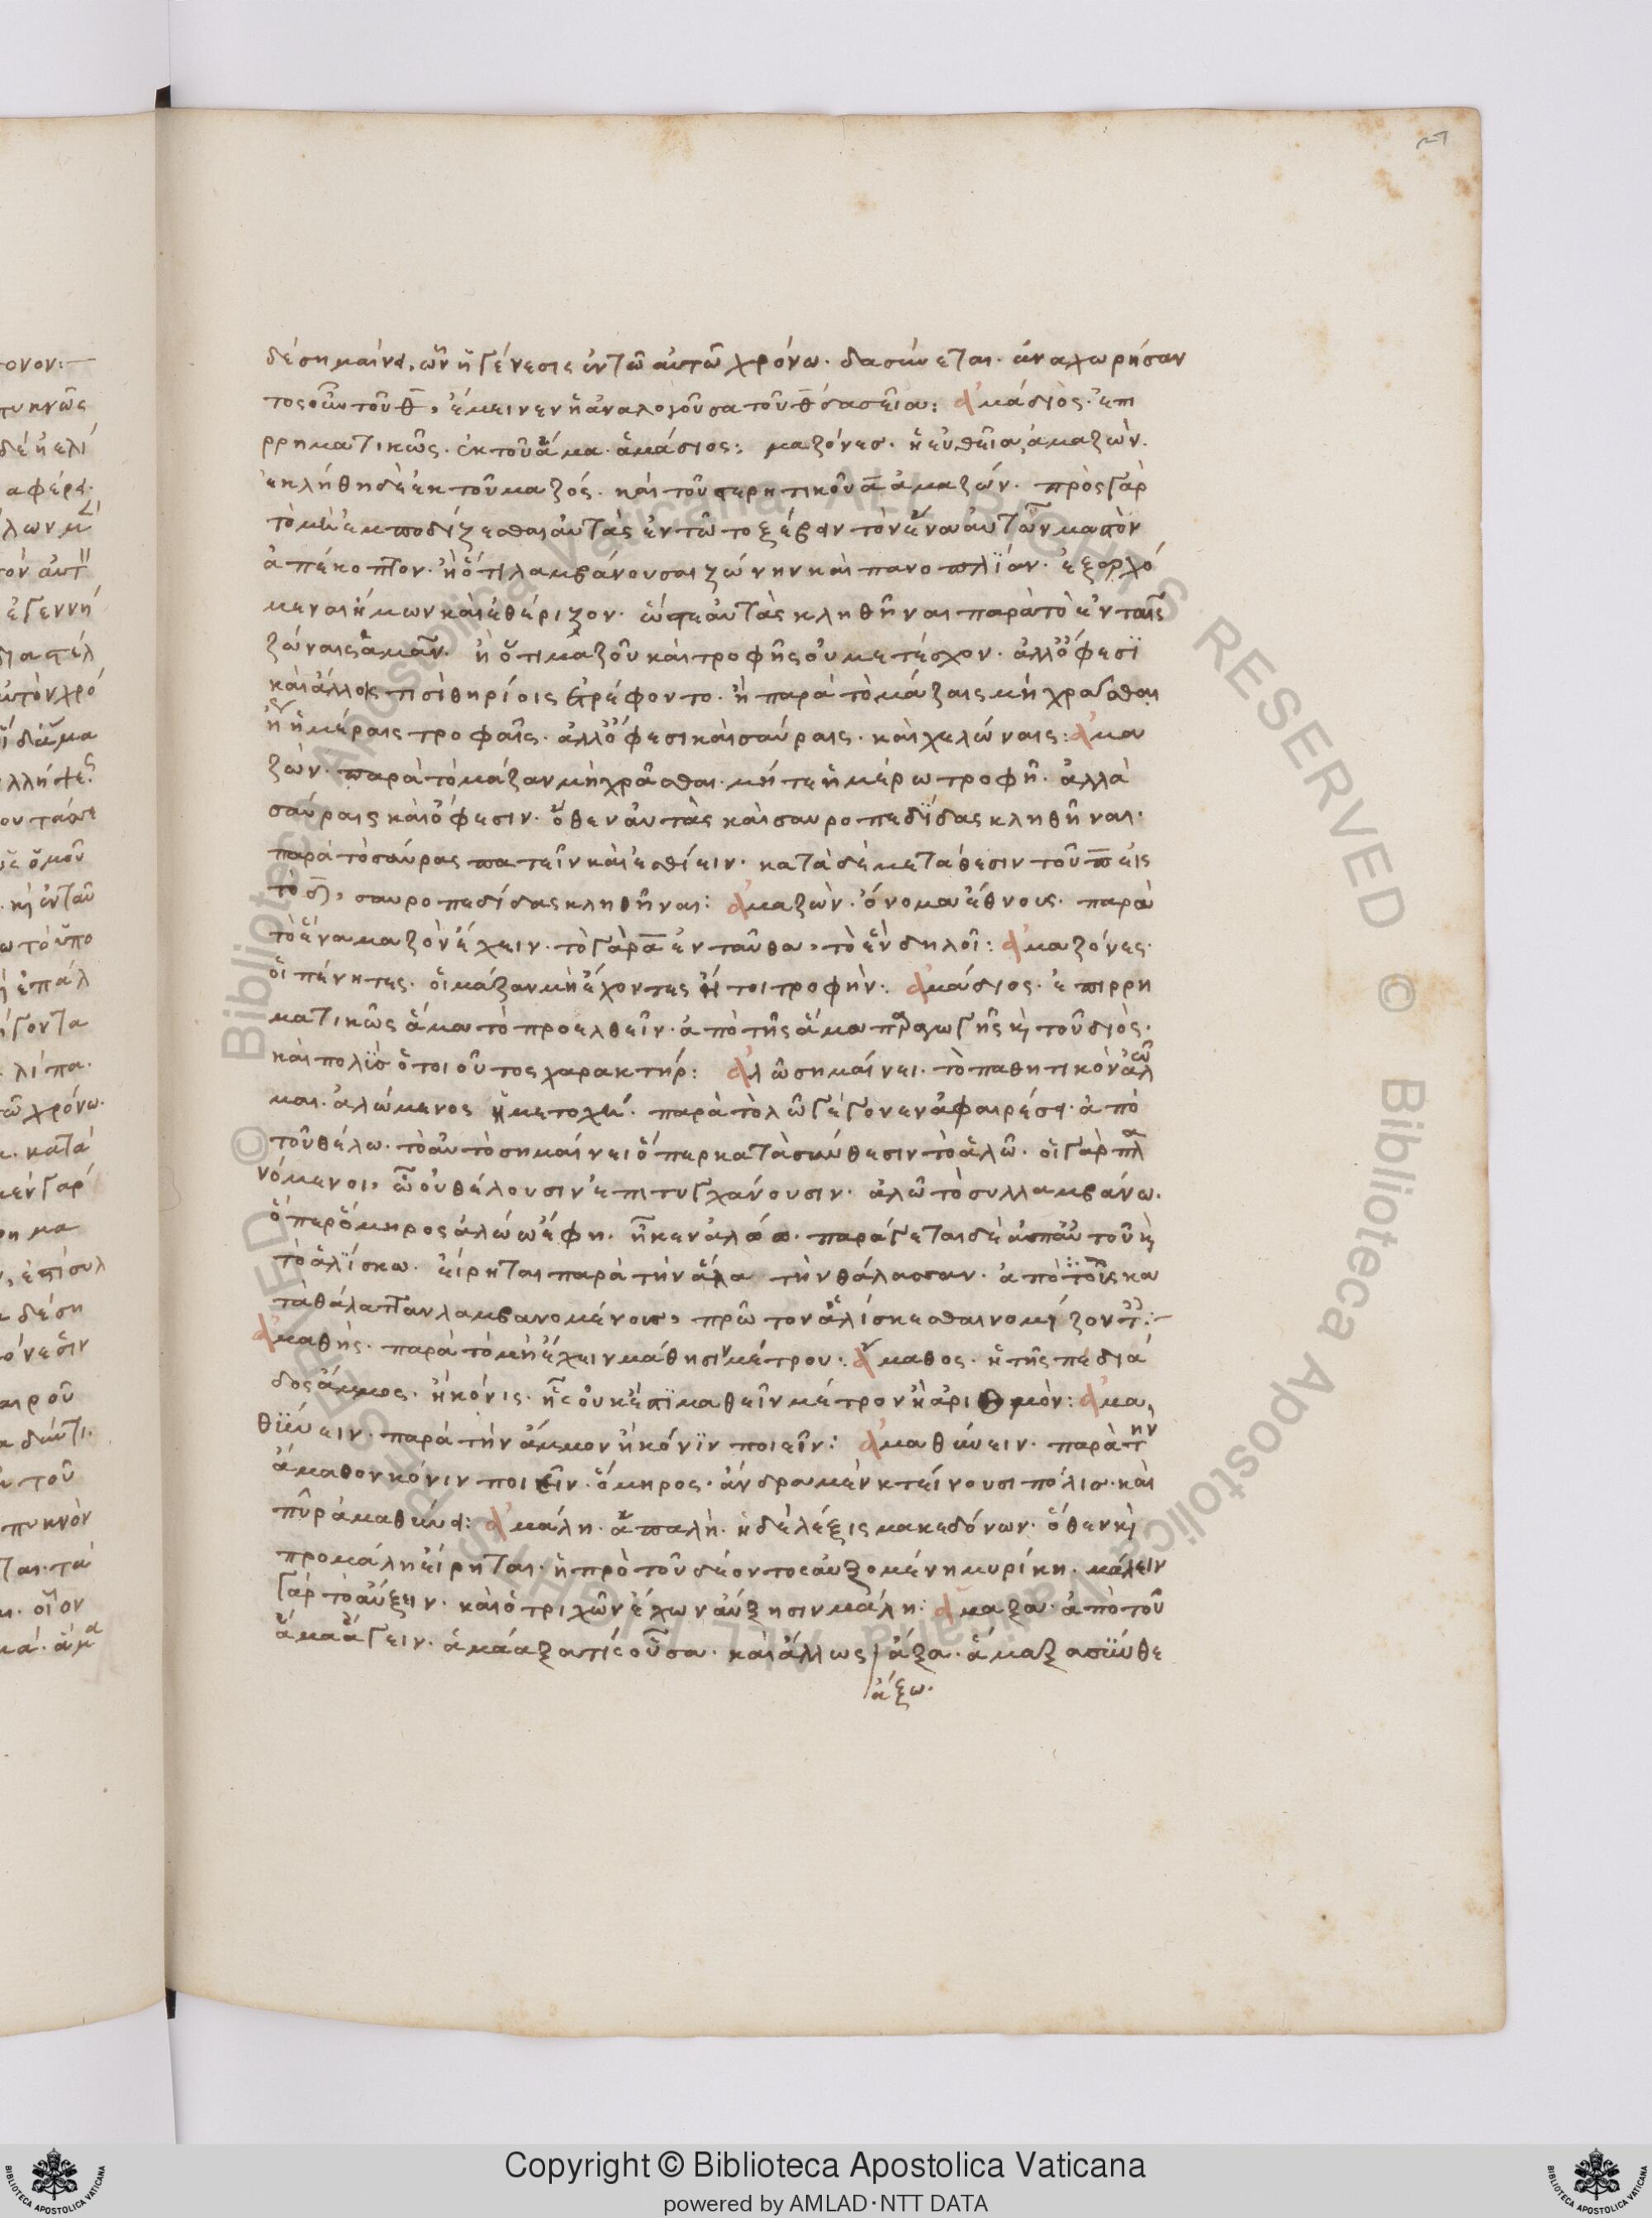 δέσημαίνει, ὧν ἡ γένεσις ἐν τῶ αὐτῶ χρόνω. δασύνεται. ἀναχωρήσαν
τος οὖν τοῦ θ, ἔμεινεν ἡ ἀναλογοῦσα τοῦ θ δασεῖα: ἀμάδιὸς. ἐπι
ρρηματικῶς. ἐκ τοῦ ἅμα. ἁμάδιος: μαζόνεσ. ἡ εὐθεῖα, ἀμαζὼν.
ἐκλήθη δὲ ἐκ τοῦ μαζός. καὶ τοῦ στερητικοῦ α ἀμαζών. πρὸς γὰρ
τὸ μὴ ἐμποδίζεσθαι αὐτὰς ἐν τῶ τοξεύειν τὸν ἕνα αὐτῶν μαστὸν
ἀπέκοπτον. ἢ ὅτι λαμβάνουσαι ζώνην καὶ πανοπλίαν. ἐξερχό
μεναι ἤμων καὶ ἐθέριζον. ὥστε αὐτὰς κληθῆναι παρὰ τὸ ἐν ταῖς
ζώναις ἀμᾶν. ἢ ὅτι μαζοῦ καὶ τροφῆς οὐ μετέσχον. ἀλλ' ὄφεσϊ
καὶ ἄλλοις τισὶ θηρίοις ἐτρέφοντο. ἢ παρὰ τὸ μάζαις μὴ χρᾶσθαι
ἢ ἡμέραις τροφαῖς. ἀλλ' ὄφεσι καὶ σαύραις. καὶ χελώναις: ἀμα
ζών. παρὰ τὸ μάζαν μὴ χρᾶσθαι. μήτε ἡμέρω τροφῆ. ἀλλὰ
σαύραις καὶ ὄφεσιν. ὅθεν αὐτὰς καὶ σαυροπεδίδας κληθῆναι.
παρὰ τὸ σαύρας πατεῖν καὶ ἐσθίειν. κατὰ δὲ μετάθεσιν τοῦ π εἰς
τὸ δ, σαυροπεδίδας κληθῆναι: ἀμαζὼν. ὄνομα ἔθνους. παρὰ
τὸ ἕνα μαζὸν ἔχειν. τὸ γὰρ α ἐνταῦθα, τὸ ἓν δηλοῖ: ἀμαζόνες.
οἱ πένητες. οἱ μάζαν μὴ ἔχοντες ἤτοι τροφὴν: ἀμάδιος. ἐπιρρη
ματικῶς ἅμα τὸ προελθεῖν. ἀπὸ τῆς ἅμα παραγωγῆς κὶ τοῦ διὸς.
καὶ πολϊὸς ὁ τοιοῦτος χαρακτήρ: ἀλῶ σημαίνει. τὸ παθητικὸν ἀλῶ
μαι. ἀλώμενος ἡ μετοχή. παρὰ τὸ λῶ γέγονεν ἀφαιρέσει. ἀπὸ
τοῦ θέλω. τὸ αὐτὸ σημαίνει ὅπερ κατὰ σύνθεσιν τὸ ἀλῶ. οἱ γὰρ πλα
νόμενοι, ὧ οὐ θέλουσιν ἐπιτυγχάνουσιν. ἁλῶ τὸ συλλαμβάνω.
ὅπερ ὅμηρος ἁλώω ἔφη. ἧ κεν ἁλώω. παράγεται δὲ ἀπ' αὐτοῦ κὶ
τὸ ἁλίσκω. εἴρηται παρὰ τὴν ἅλα τὴν θάλασσαν. ἀπὸ τοῖς κα
τὰ θάλατταν λαμβανομένοις, πρῶτον ἁλίσκεσθαι νομίζοντ:
ἀμαθὴς. παρὰ τὸ μὴ ἔχειν μάθησιν μέτρου: ἄμαθος. ἡ τῆς πεδιά
δος ἄμμος. ἢ κόνις. ἧς οὐκ ἔστϊ μαθεῖν μέτρον ἢ ἀριθμὸν: ἀμα
θϊύειν. παρὰ τὴν ἄμμον ἢ κόνϊν ποιεῖν: ἀμαθύνειν. παρὰ τὴν
ἄμαθον κόνιν ποιεῖν. ὅμηρος. ἄνδρα μὲν κτείνουσι πόλιν. καὶ
πῦρ ἀμαθύνει: ἀμάλη. ἁπαλὴ. ἡ δὲ λέξις μακεδόνων. ὅθεν κὶ
προμάλη εἴρηται. ἡ πρὸ τοῦ δέοντος αὐξομένη μυρίκη. μάλειν
γὰρ τὸ αὔξειν. καὶ ὁ τριχῶν ἔχων αὔξησιν μάλη: ἅμαξα. ἀπὸ τοῦ
ἅμα ἄγειν. ἁμάαξα τὶς οὖσα. καὶ ἄλλως ἄξα. ἅμαξα συνθε
ἄξω.